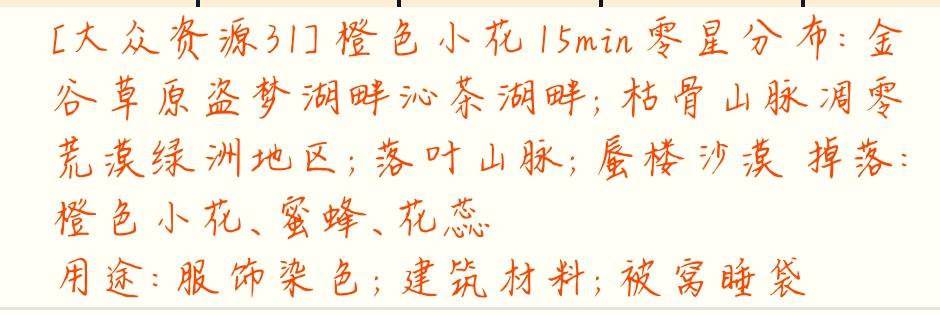 [大众资源31]橙色小花15min零星分布:金
谷草原盗梦湖畔沁茶湖畔;枯骨山脉凋零
荒漠绿洲地区;落叶山脉;蜃楼沙漠 掉落:
橙色小花、蜜蜂、花蕊
用途:服饰染色;建筑材料;被窝睡袋